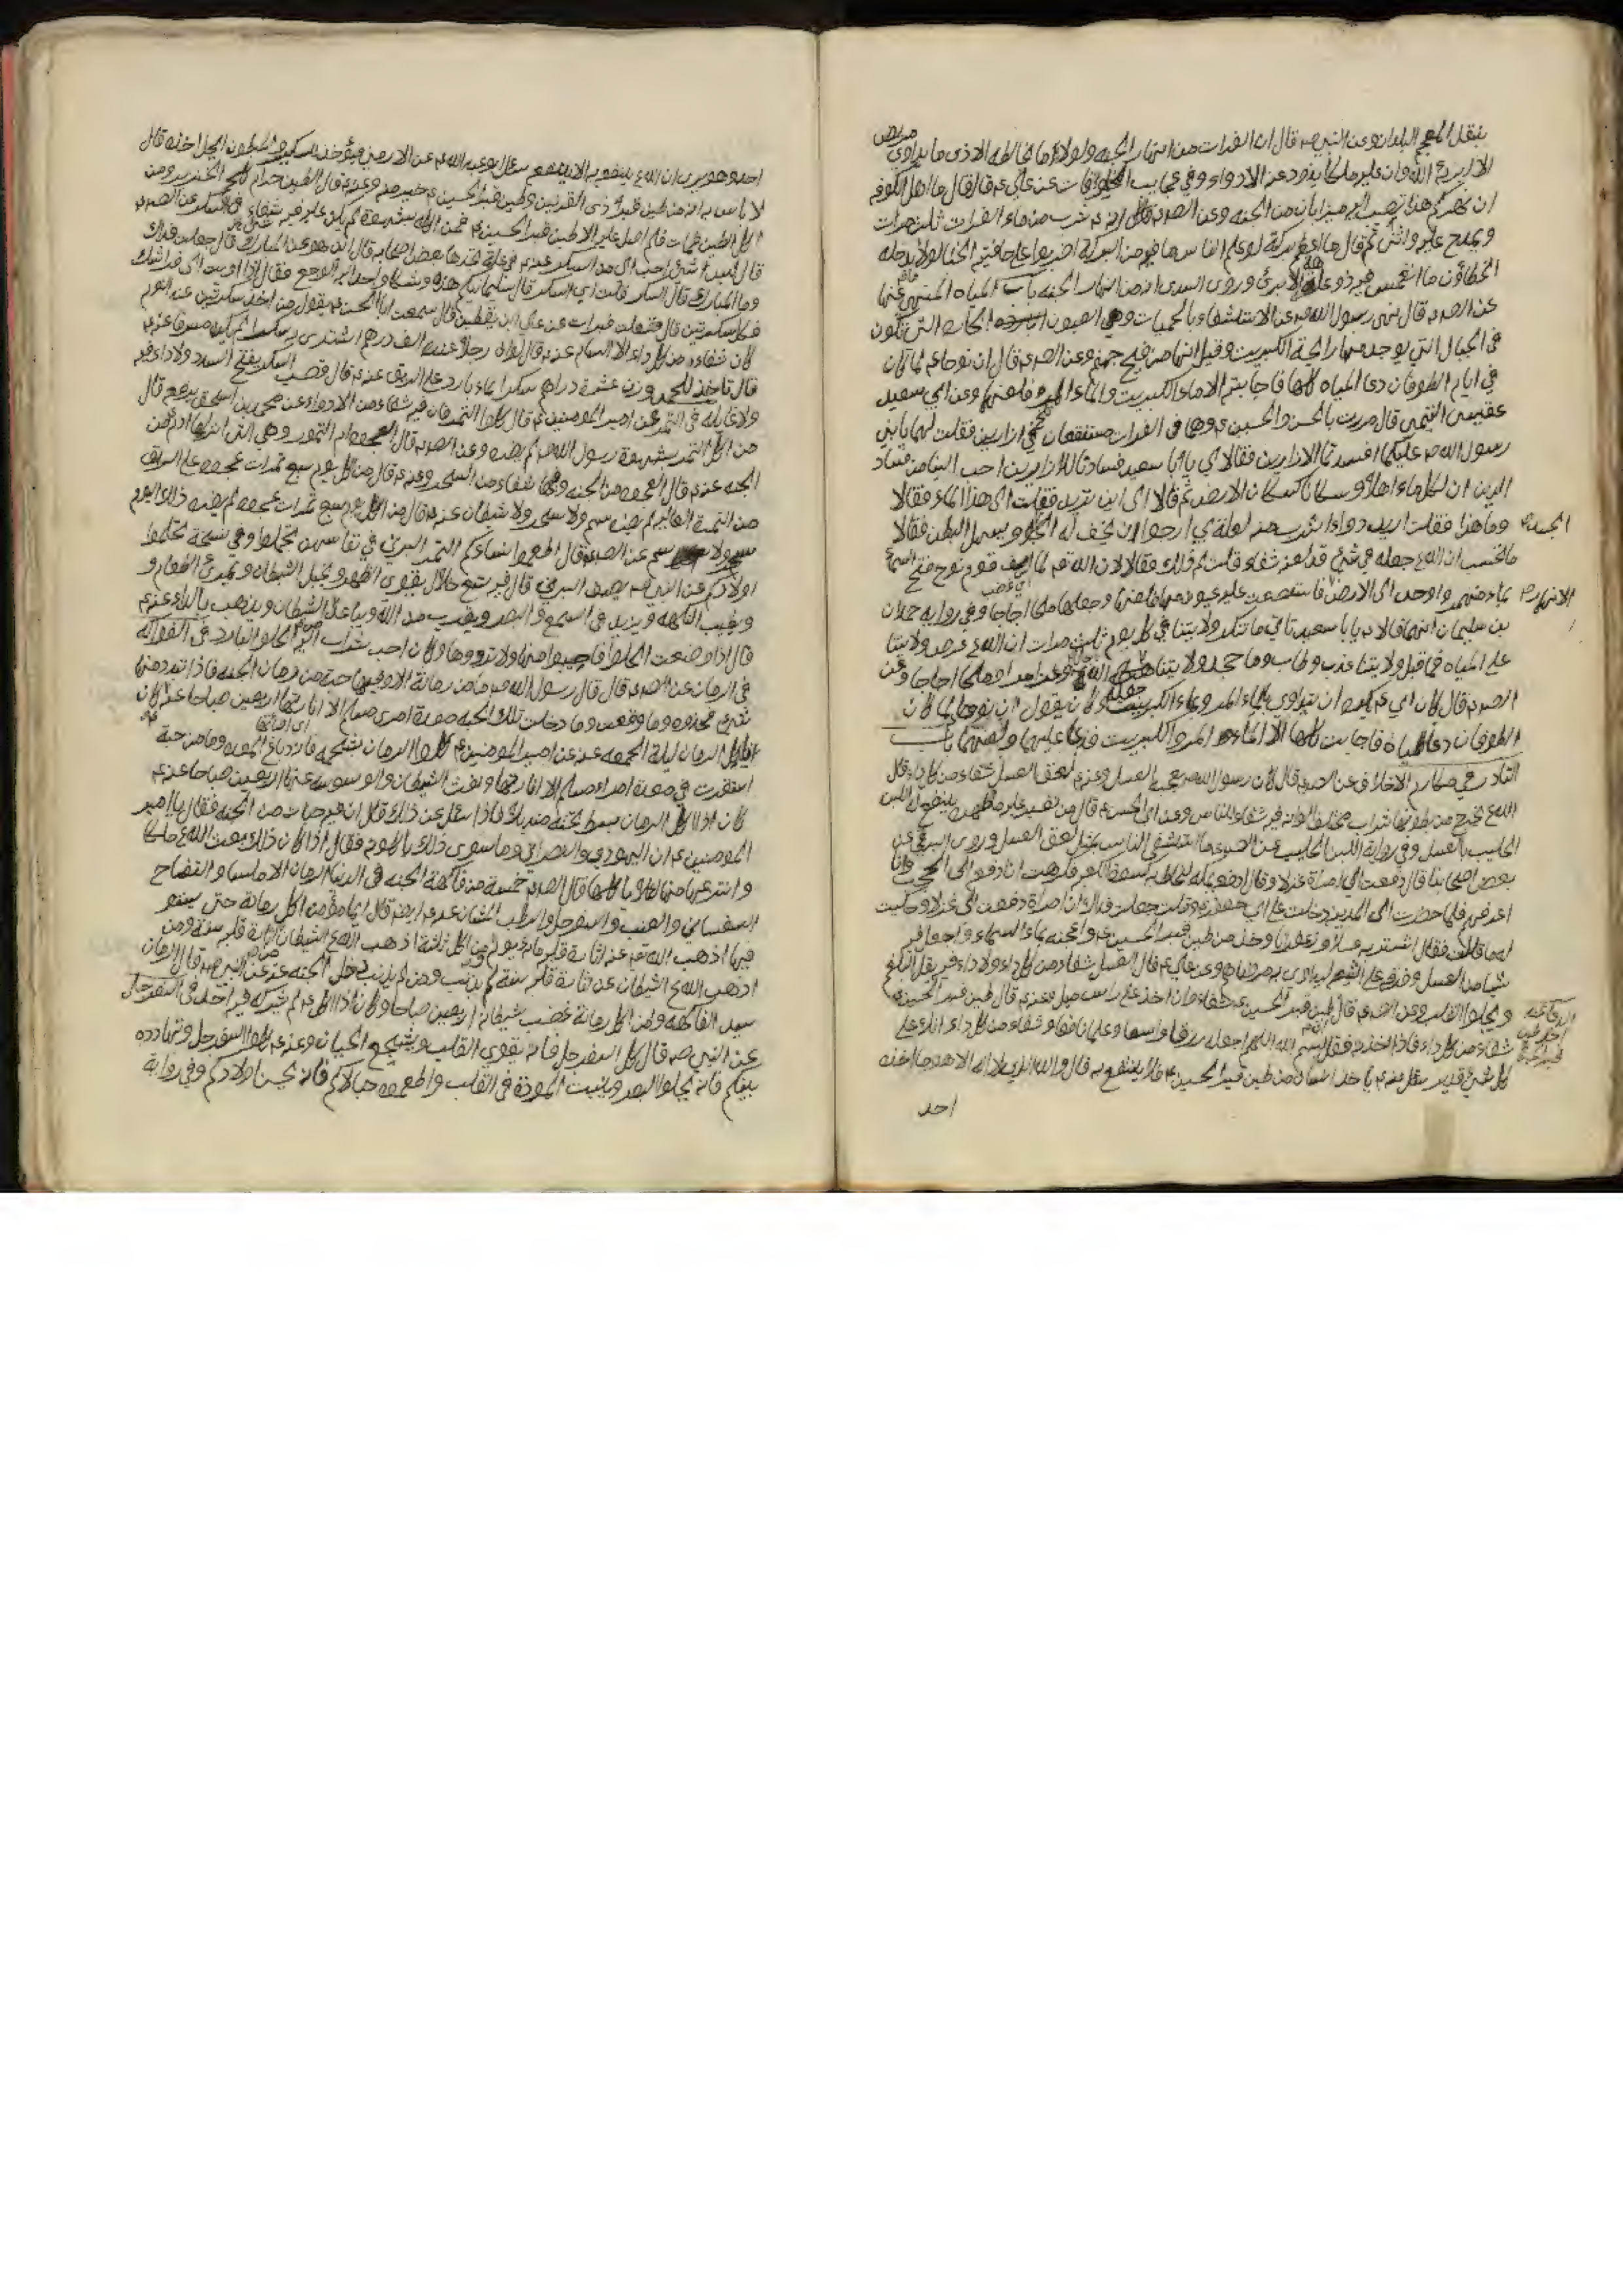 ينقل المعجم البلدان وعن النبي ص قال ان الفرات من انهار الجنه ولولا ما يخالطه الاذى ما يداوى مريض
الا ابرءه الله وان عليه ملكا يذود عنه الادواء وفي عجايب المخلوقات عن علي ع قال يا اهل الكوفه
ان نهركم هذا يصب اليه ميزابان من الجنه وعن الصادق انه شرب من ماء الفرات ثلث مرات
ثم قال ما اعظم بركته لو علم الناس ما فيه من البركة لضربوا على حافتيه الخيام ولولا ما يدخله
الخطاؤن ما انغمس فيه ذو عاهة الا برئ وروى السدى انه من انهار الجنه باب المياه المنهى عنها
عن الص ع قال نهى رسول الله ص عن الاستشفاء بالحميات وهي العيون الحاره التي تكون
في الجبال التي يوجد منها رايحة الكبريت وقيل انها من فيح جهنم وعن الص ع قال ان نوحا ع لما كان
في ايام الطوفان دعى المياه كلها فاجابته الا ماء الكبريت والماء المر فلعنها وعن ابي سعيد
عقيصى التيمى قال مررت بالحسن والحسين ع وهما في الفرات مستنقعان في ازارين فقلت لهما يا بني
رسول الله ص عليكما افسدتما الازارين فقالا لي يا ابا سعيد فسادنا للازارين احب الينا من فساد
الدين ان للماء اهلا وسكانا كسكان الارض ثم قالا الى اين تريد فقلت الى هذا الماء فقالا
وما هذا فقلت اريد دواءه اشرب منه لعلة بي ارجو ان يخف له الجسد ويسهل البطن فقالا
ما نحسب ان الله ع جعل في شئ قد لعنه شفاء قلت لم ذلك فقالا لان الله تع لما اسف قوم نوح فتح السماء
بماء منهمر واوحى الى الارض فاستعصت عليه عيون منها فلعنها وجعلها ملحا اجاجا وفي رواية حمدان
بن سليمان انهما قالا يا ابا سعيد تاتي ماء ينكر ولايتنا في كل يوم ثلث مرات ان الله ع عرض ولايتنا
على المياه فما قبل ولايتنا عذب وطاب وما جحد ولايتنا جعله الله ع مرا او ملحا اجاجا وعن
الص ع قال كان ابي ع يكره ان يتداوى بالماء المر وبماء الكبريت وكان يقول ان نوحا لما كان
الطوفان دعا المياه فاجابته كلها الا الماء المر والكبريت فدعا عليهما ولعنهما باب
النادر في مكارم الاخلاق عن الص ع قال كان رسول الله ص يعجبه العسل وعنه ع لعق العسل شفاء من كل داء قال
الله ع يخرج من بطونها شراب مختلف الوانه فيه شفاء للناس وعن ابي الحسن ع قال من تغير عليه ماء ظهره ينفع له اللبن
الحليب بالعسل وفي رواية اللبن الحليب عن الص ع ما استشفى الناس بمثل لعق العسل وروى البرقي عن
بعض اصحابنا قال دفعت الي امراة غزلا وقالت ادفعه بمكة ليخاط به كسوة الكعبه فكرهت ان ادفعه الى الحجبه وانا
اعرفهم فلما صرت الى المدينه دخلت على ابي جعفر ع وقلت جعلت فداك ان امراة دفعت الى غزلا وحكيت
له ما قالت فقال اشتر به عسلا وزعفران وخذ من طين قبر الحسين ع واعجنه بماء السماء واجعل فيه
شيئا من العسل وفرقه على الشيعه ليداووا به مرضاهم وعن علي ع قال العسل شفاء من كل داء ولا داء فيه يقل البلغم
ويجلو القلب وعن الص ع قال طين قبر الحسين ع شفاء وان اخذ على راس ميل وعنه ع قال طين قبر الحسين ع
شفاء من كل داء فاذا اخذته فقل بسم الله اللهم اجعله رزقا واسعا وعلما نافعا وشفاء من كل داء انك على
كل شئ قدير سئل عنه ع ياخذ انسان من طين قبر الحسين ع فلا ينتفع به قال والله الذي لا اله الا هو ما اخذه
احد
احد وهو يرى ان الله ع ينفعه به الا نفعه سئل ابو عبد الله ع عن الارمني فيؤخذ للكسير والمبطون ايحل اخذه قال
لا باس به انه من طين قبر ذي القرنين وطين قبر الحسين ع خير منه وعنه ع قال الطين حرام كلحم الخنزير ومن
اكل الطين فمات فلم اصل عليه الا طين قبر الحسين ع فمن اكله بشهوة لم يكن عليه فيه شفاء في السكر عن الص ع
قال ليس شئ احب الي من السكر
وما المبارك قال السكر قلت اي السكر قال سليمانيكم هذا وشكا واحد اليه الوجع فقال اذا اويت الى فراشك
فكل سكرتين قال ففعلت فبرات عن علي ابن يقطين قال سمعت ابا الحسن ع يقول من اخذ سكرتين عند النوم
كان شفاء من كل داء الا السام عنه ع قال لو ان رجلا عنده الف درهم اشترى به سكرا لم يكن مسرفا عنه ع
قال تاخذ للحمى وزن عشرة دراهم سكرا بماء بارد على الريق عنه ع قال قصب السكر يفتح السدد ولا داء فيه
ولا غايلة في التمر عن امير المؤمنين ع قال كلوا التمر فان فيه شفاء من الادواء عن محمد بن اسحق يرفعه قال
من اكل التمر بشهوة رسول الله ص لم يضره وعن الص ع قال العجوه ام التمور وهي التي انزلها ادم من
الجنه عنه ع قال العجوه من الجنه وفيها شفاء من السحر وعنه ع قال من اكل كل يوم سبع تمرات عجوه على الريق
من التمرة العاليه لم يضره سم ولا سحر ولا شيطان عنه ع قال من اكل سبع تمرات عجوه لم يضره ذلك اليوم
سم عن الص ع قال اطعموا نساءكم التمر البرني في نفاسهن تجملوا وفي نسخة تحلموا
اولادكم عن النبي ص يصف البرني قال فيه تسع خلال يقوي الظهر ويخبل الشيطان ويمرئ الطعام و
ويطيب النكهه ويزيد في السمع والبصر ويقرب من الله ويباعد الشيطان ويذهب بالداء عنه ع
قال اذا وضعت الحلوا فاصيبوا منها ولا تردوها وكان احب شراب اليه الحلو البارد في الفواكه
في الرمان عن الص ع قال قال رسول الله ص ما من رمانة الا وفيها حبة من رمان الجنه فاذا تبدد منها
شئ فخذوه وما وقعت وما دخلت تلك الحبه معدة امرئ مسلم الا انارتها اربعين صباحا عنه ع كان
ياكل الرمان ليلة الجمعه عنه عن امير المؤمنين ع كلوا الرمان بشحمه فانه دباغ المعده وما من حبة
استقرت في معدة امرء مسلم الا انارتها ونفت الشيطان والوسوسه عنها اربعين صباحا عنه ع
كان اذا اكل الرمان بسط تحته منديلا فاذا سئل عن ذلك قال ان فيه حبات من الجنه فقال يا امير
المومنين ع ان اليهودي والنصراني وما سوى ذلك ياكلونه فقال اذا كان ذلك بعث الله ع ملكا
وانتزعها منها لئلا ياكلها قال الص ع خمسة من فاكهة الجنه في الدنيا الرمان الامليسا والتفاح
السفساني والعنب والسفرجل والرطب المشان عنه ع ايضا قال ايما مؤمن اكل رمانة حتى يستو
فيها اذهب الله تع الشيطان عن انارة قلبه ماة يوم ومن اكل ثلاثة اذهب الله ع الشيطان عن انارة قلبه سنة ومن
اذهب الله ع الشيطان عن انارة قلبه سنة لم يذنب ومن لم يذنب دخل الجنه عن النبي ص قال الرمان
سيد الفاكهه ومن اكل رمانة غضب شيطانه اربعين صباحا وكان اذا اكله ع لم يشركه فيه احد في السفرجل
عن النبي ص قال كل السفرجل فانه يقوي القلب ويشجع الجبان وعنه ع كلوا السفرجل وتهادوه
بينكم فانه يجلو البصر وينبت المودة في القلب واطعموه حبالاكم فانه يحسن اولادكم وفي رواية